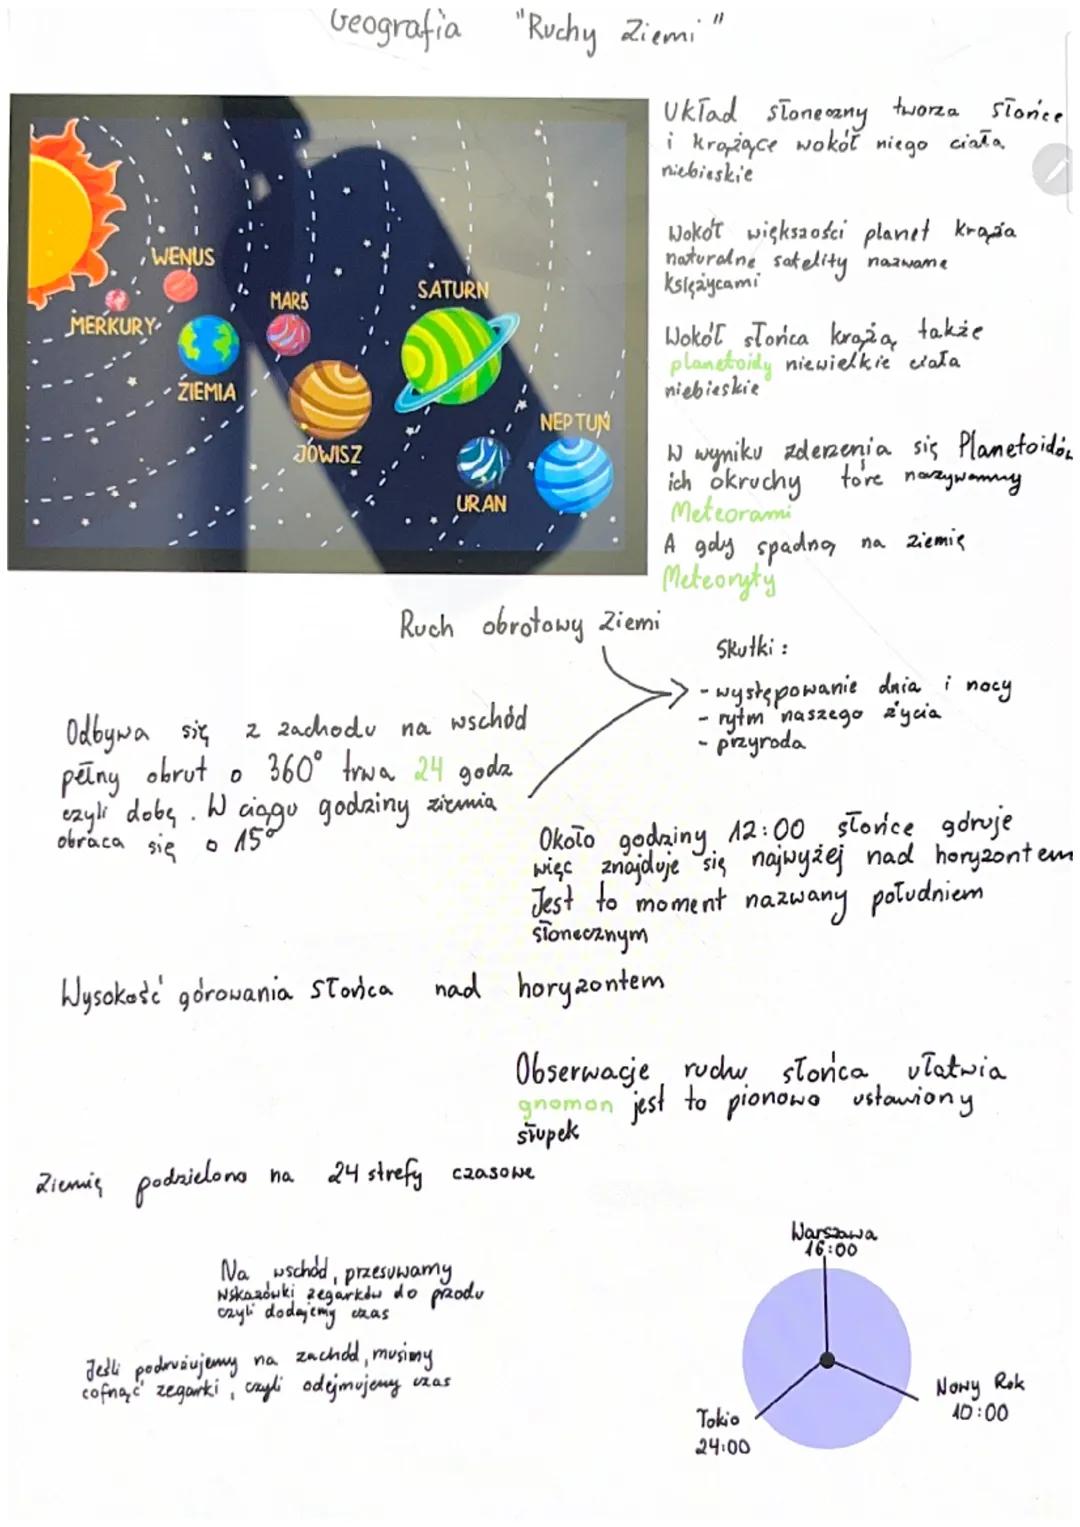 Geografia "Ruchy Ziemi"
WENUS
MERKURY
ZIEMIA
MARS
JOWISZ
SATURN
URAN
NEPTUN
Układ słoneczny tworza Słońce
i krążące wokół niego ciała
niebieskie
Wokół większości planet krąża
naturalne satelity nazwane
Księżycami
Wokół słońca krążą także
planetoidy niewielkie ciała
niebieskie
W wyniku zderzenia się Planetoidów
ich okruchy tóre nazywamy
Meteorami
A gdy spadną na ziemię
Meteoryty
Ruch obrotowy Ziemi
Skutki:
- występowanie dnia i nocy
- rytm naszego życia
- przyroda
Odbywa się z zachodu na wschód
pełny obrut o 360° trwa 24 godz
czyli dobę. W ciągu godziny ziemia
obraca się o 15°
Około godziny 12:00 słońce góruje
więc znajduje się najwyżej nad horyzontem
Jest to moment nazwany południem
słonecznym
Wysokość górowania Słońca nad horyzontem
Obserwacje ruchu słońca ułatwia
gnomon jest to pionowo ustawiony
słupek
Ziemię podzielono na 24 strefy czasowe
Na wschód, przesuwamy
wskazówki zegarków do przodu
czyli dodajemy czas
Jeśli podrużujemy na zachód, musimy
cofnąć zegarki, czyli odejmujemy czas
Warszawa
16:00
Nowy Rok
10:00
Tokio
24:00